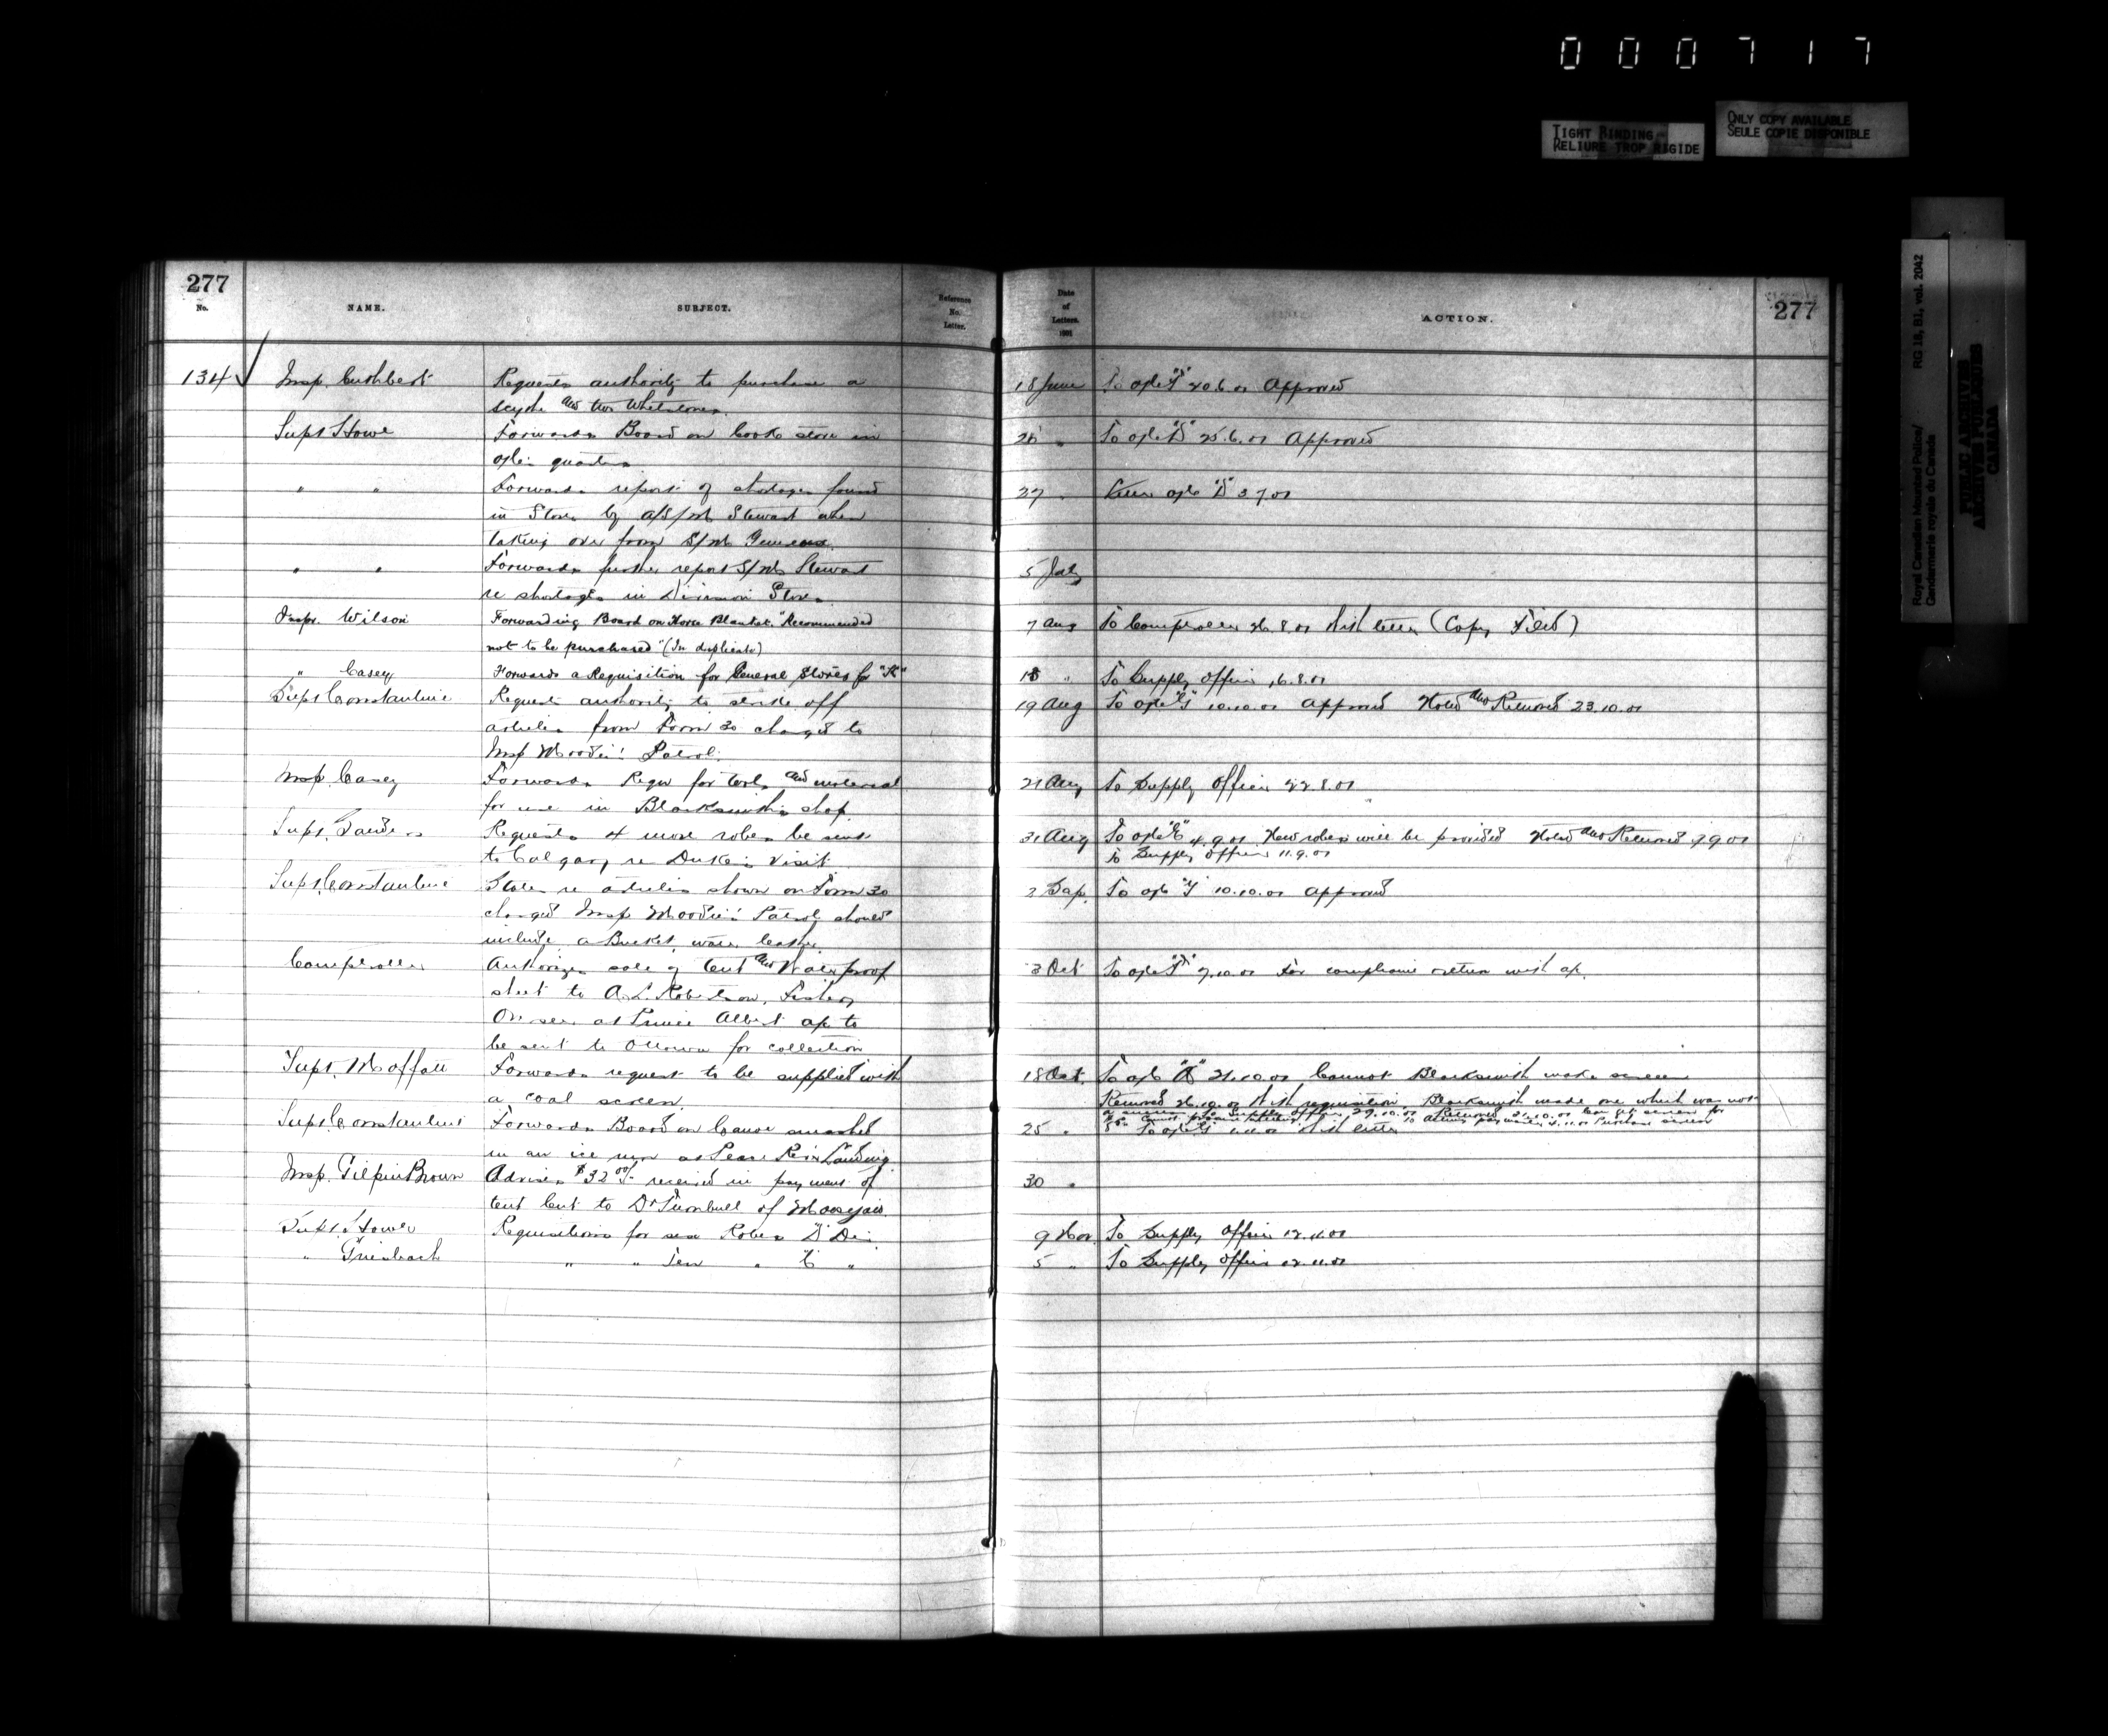 000717
TIGHT BINDING
RELIURE TROP RIGIDE
ONLY COPY AVAILABLE
SEULE COPIE DISPONIBLE
Royal Canadian Mounted Police/
Gendarmerie royale du Canada
RG 18, B1, vol. 2042
PUBLIC ARCHIVES
ARCHIVES PUBLIQUES
CANADA
277
No.
NAME.
SUBJECT.
Reference
No.
Letter.
Date
of
Letters.
1901
ACTION.
277
134 Insp. Cuthbert Requests authority to purchase a 18 June To 20.6.01 Approved
scythe and two Whetstones.
Supt Howe Forwards Board on Cook stove in To 25.6.01 Approved
quarters
" " Forwards report of shortages found 27 " "D" 3.7.01
in Store by A/S/M Stewart when
taking over from S/M
" " Forwards further report S/M Stewart 5 July
re shortages in Division Store
Inspr. Wilson Forwarding Board on Horse Blanket. "Recommended 7 Aug To Comptroller 26.8.01 With letter (Copy Filed)
not to be purchased" (In duplicate)
" Casey Forwards a Requisition for General Stores for "K" " To Supply Officer 16.8.01
Supt Constantine Request authority to strike off 19 Aug To "G" 10.10.01 Approved Noted and Returned 23.10.01
articles from Form 30 charged to
Insp Moodie's Patrol.
Insp. Casey Forwards Requ for tools and material 21 Aug To Supply Officer 22.8.01
for use in Blacksmith's shop.
Supt. Sanders Requests 4 more robes be sent 31 Aug To "E" 4.9.01. New robes will be provided Noted and Returned 7.9.01
to Calgary re Duke's visit To Supply Officer 11.9.01
Supt. Constantine States re articles shown on Form 30 2 Sep. To "G" 10.10.01 Approved
charged Insp Moodie's Patrol should
include a Bucket, water, leather
Comptroller Authorizes sale of tent and Waterproof 3 Oct To 7.10.01 For compliance return with
sheet to A. L. Robertson, Fishery
Overseer at Prince Albert to
be sent to Ottawa for collection
Supt. Moffatt Forwards request to be supplied with 18 Oct. To 21.10.01 Cannot Blacksmith make screen
a coal screen. Returned 26.10.01 With requisition. Blacksmith made one which was not
a success To Supply Officer 29.10.01 Returned
Supt. Constantine Forwards Board on Canoe smashed 25 " To "G" With letter
in an ice run at Peace River Landing
Insp. Gilpin Brown Advises $32.00 received in payment of 30 "
tent lent to Dr Turnbull of Moosejaw.
Supt. Howe Requisitions for six Robes "D" Div. 9 Nov. To Supply Officer 12.11.01
" Griesbach " " Ten " "C" " 5 " To Supply Officer 12.11.01